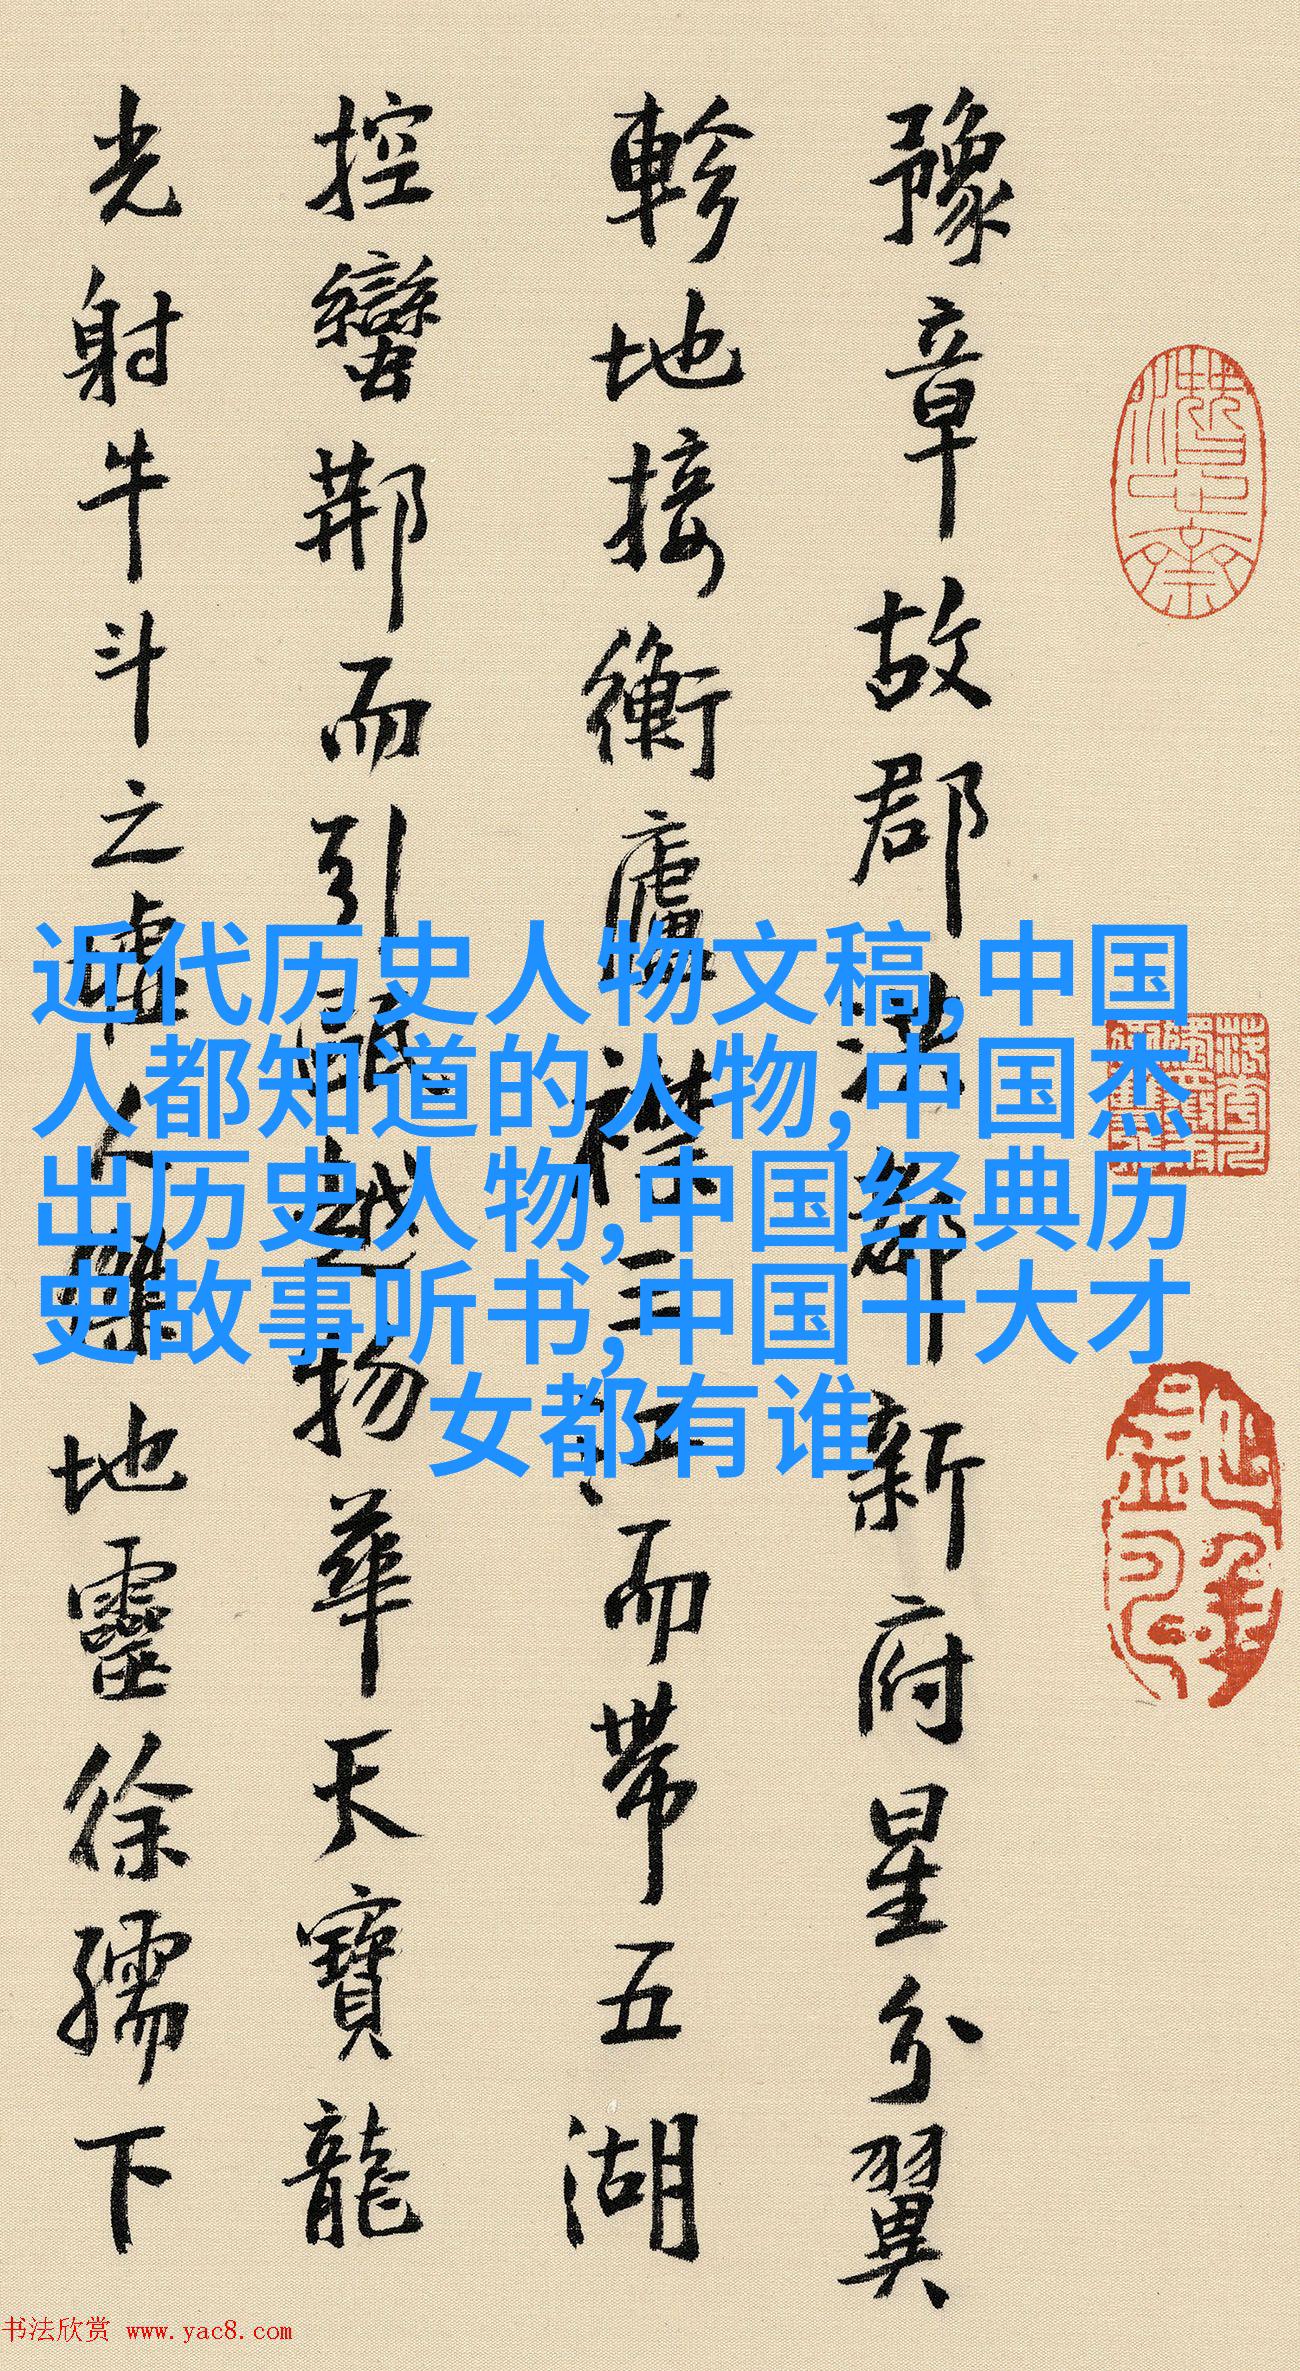 豫章故郡洪都新府星分翼
軫地接衡廬襟三江而帶五湖
控蠻荆而引甌越物華天寶龍
光射牛斗之墟人傑地靈徐孺下
近代历史人物文稿,中国
人都知道的人物,中国杰
出历史人物,中国经典历
史故事听书,中国十大才
女都有谁
书法欣赏 www.yac8.com